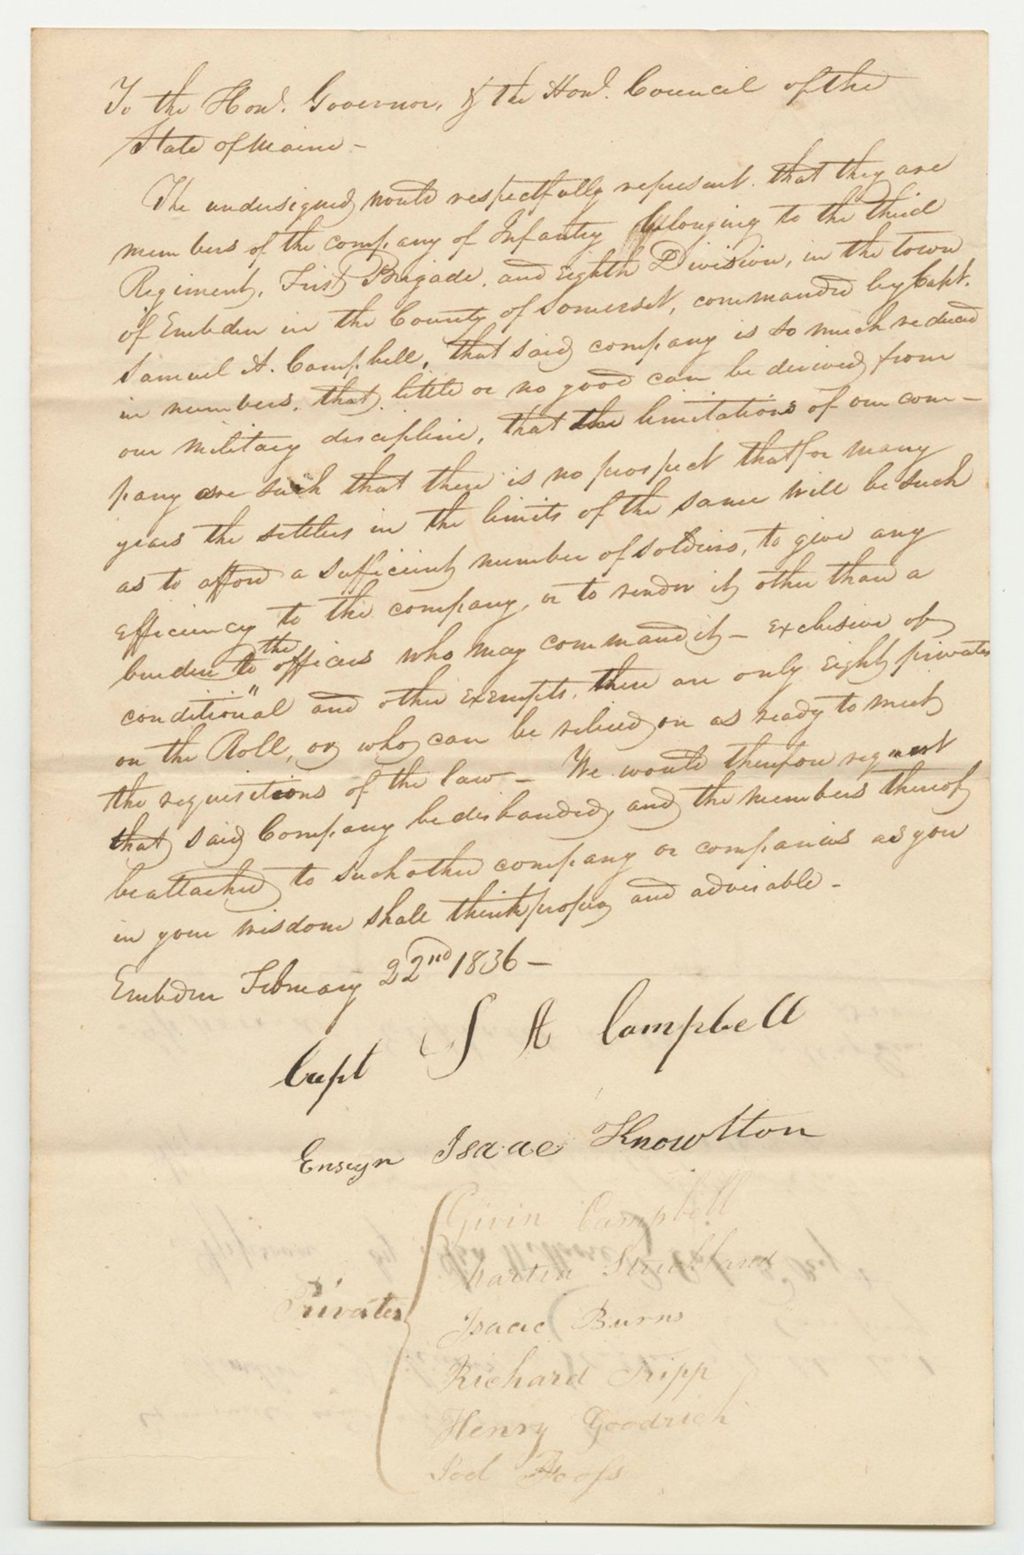 To the Hon'l. Governor, & the Hon'l. Council of the
State of Maine -
The undersigned would respectfully represent that they are
members of the company of Infantry belonging to the third
Regiment, First Brigade, and eighth Division, in the town
of Embden in the County of Somerset, commanded by Capt.
Samuel A. Campbell, that said company is so much reduced
in numbers, that little or no good can be derived from
our military discipline, that the limitations of our com-
pany are such that there is no prospect that for many
years the settlers in the limits of the same will be such
as to afford a sufficient number of soldiers, to give any
efficiency to the company, or to render it other than a
burden to the officers who may command it - exclusive of
conditional and other exempts, there are only eight privates
on the Roll, or who can be relied on as ready to meet
the requisitions of the law - We would therefore request
that said Company be disbanded, and the members thereof
be attached to such other company or companies as you
in your wisdom shall think proper and advisable -
Embden February 22nd 1836 -
Capt S A Campbell
Ensign Isaac Knowlton
Privates
Givin Campbell
Martin Strickland
Isaac Burns
Richard Tripp
Henry Goodrich